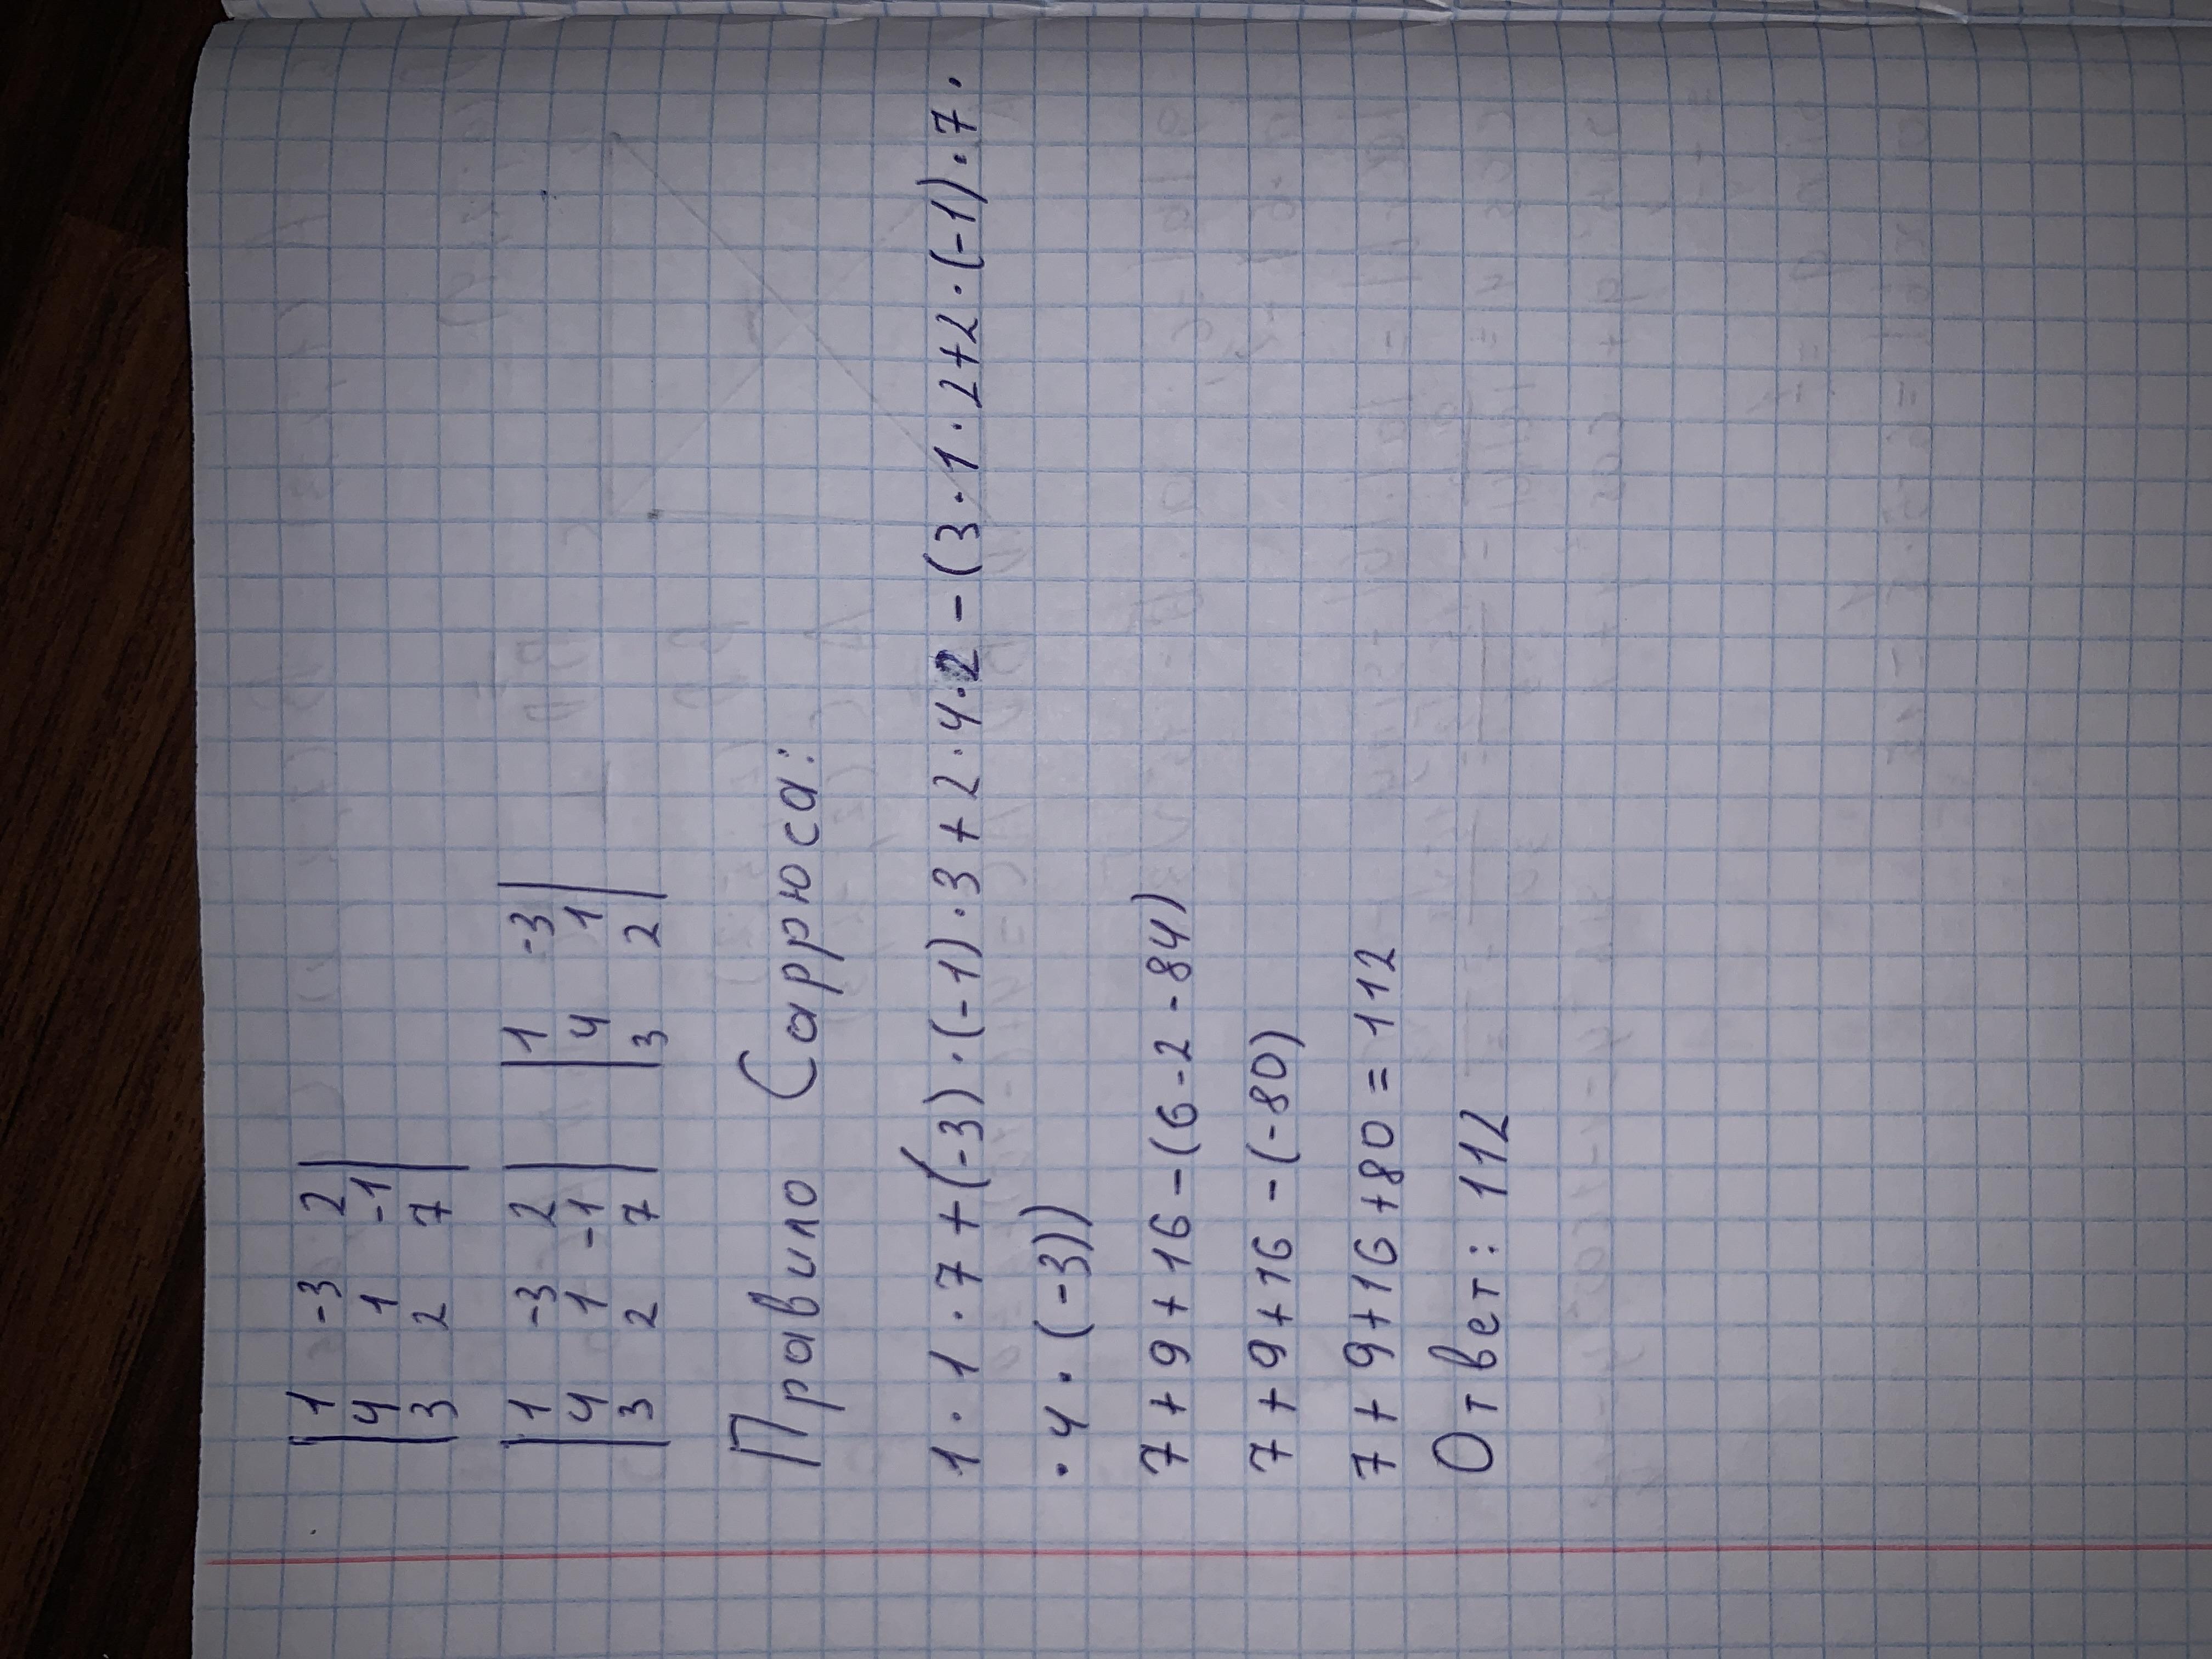 |1 -3 2|
|4 1 -1|
|3 2 7|
|1 -3 2| |1 -3|
|4 1 -1| |4 1|
|3 2 7| |3 2|
Правило Саррюса:
1·1·7+(-3)·(-1)·3+2·4·2-(3·1·2+2·(-1)·7·
·4·(-3))
7+9+16-(6-2-84)
7+9+16-(-80)
7+9+16+80=112
Ответ: 112